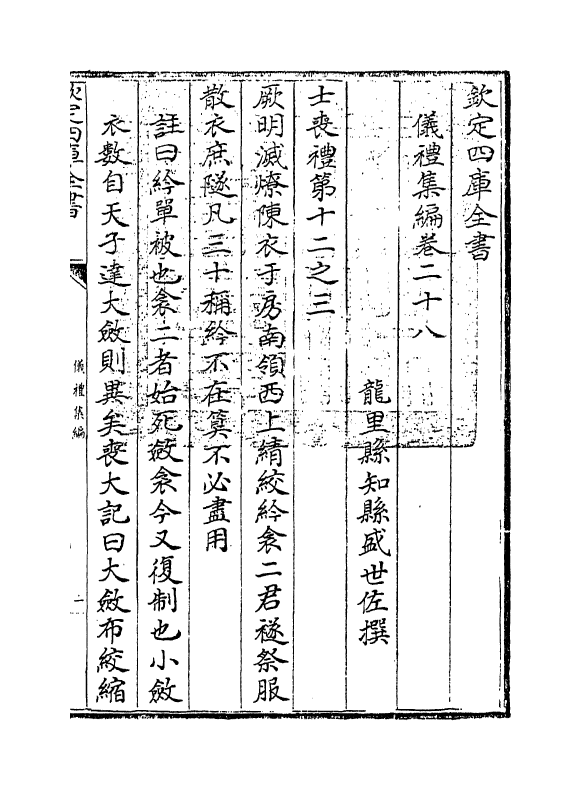 欽定四庫全書
儀禮集編卷二十八
龍里縣知縣盛世佐撰
士喪禮第十二之三
厥明滅燎陳衣于房南領西上綪絞紟衾二君襚祭服
散衣庶隧凡三十稱紟不在算不必盡用
註曰紟單被也衾二者始死斂衾今又復制也小斂
衣數自天子達大斂則異矣喪大記曰大斂布絞縮
欽定四庫全書
儀禮集編
一